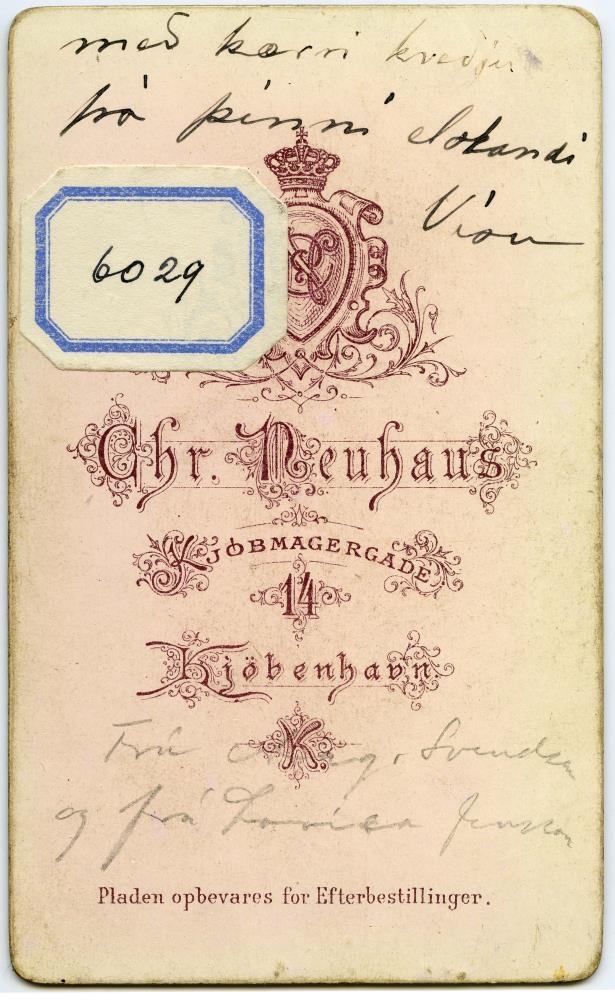 með kærri kveðju
frá þinni elskandi
6029
Chr. Neuhaus
KJÖBMAGERGADE
14
Kjöbenhavn.
K.
Frú Svendsen
og frá
Pladen opbevares for Efterbestillinger.